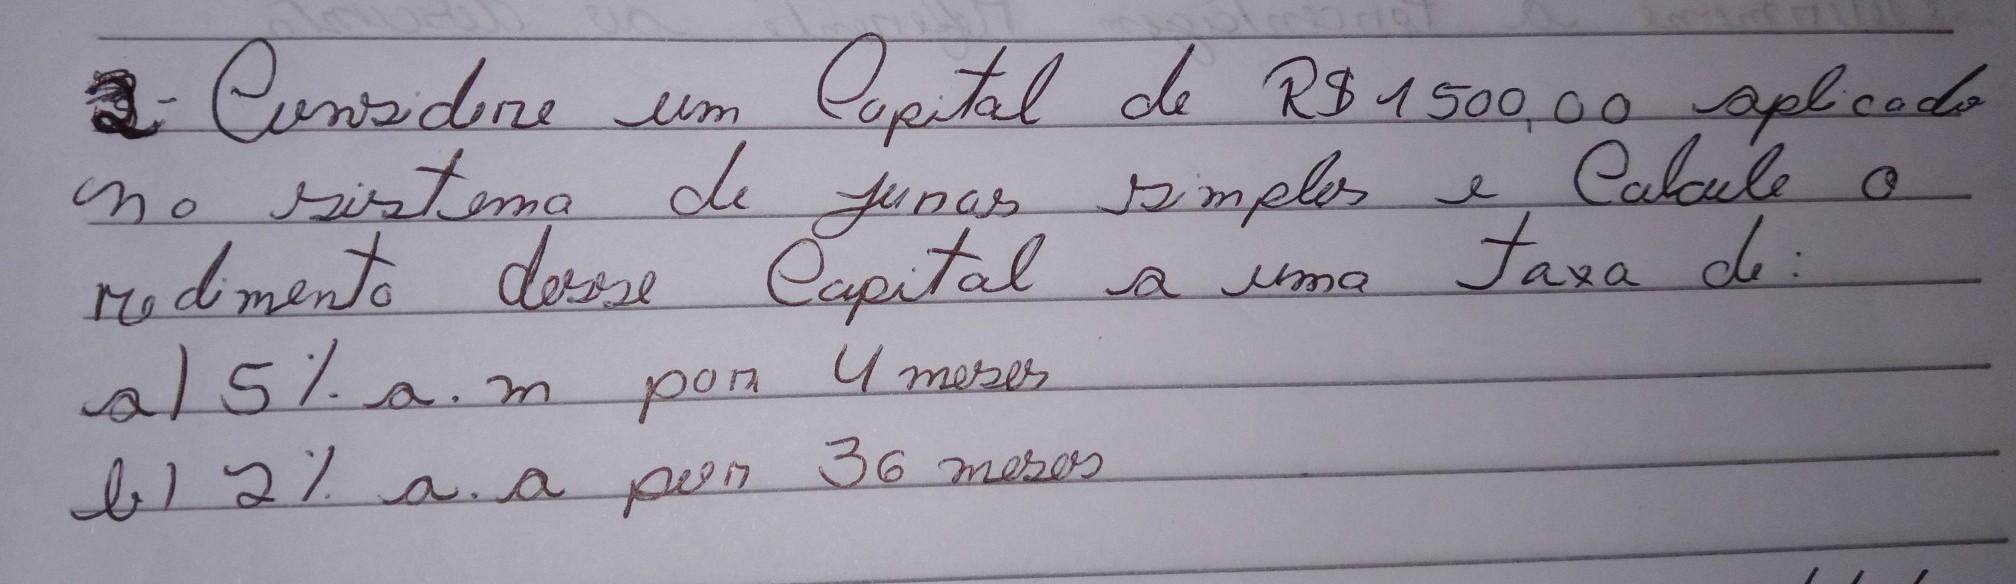 2- Considere um Capital de R$ 1500,00 aplicado
no sistema de juros simples e Calcule o
redimento desse Capital a uma taxa de:
a) 5% a.m por 4 meses
b) 2% a.a por 36 meses